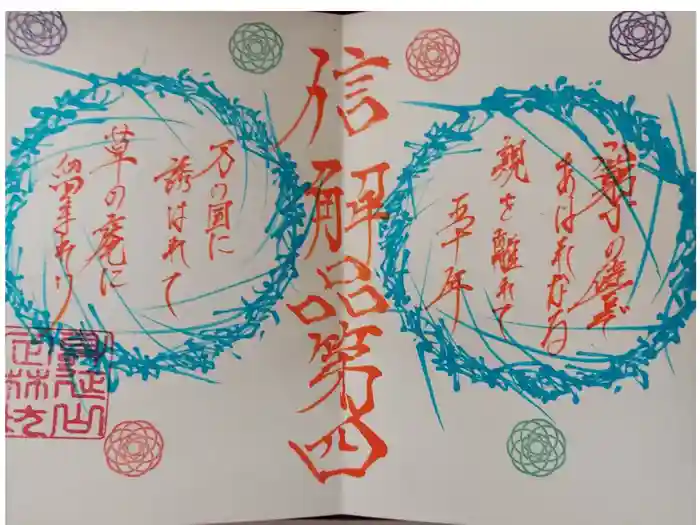 窮子の
あはれなる
親を離れて
五十年
信解品第四
万の国に
誘はれて
草の庵に
留まれり
身延山
定林坊